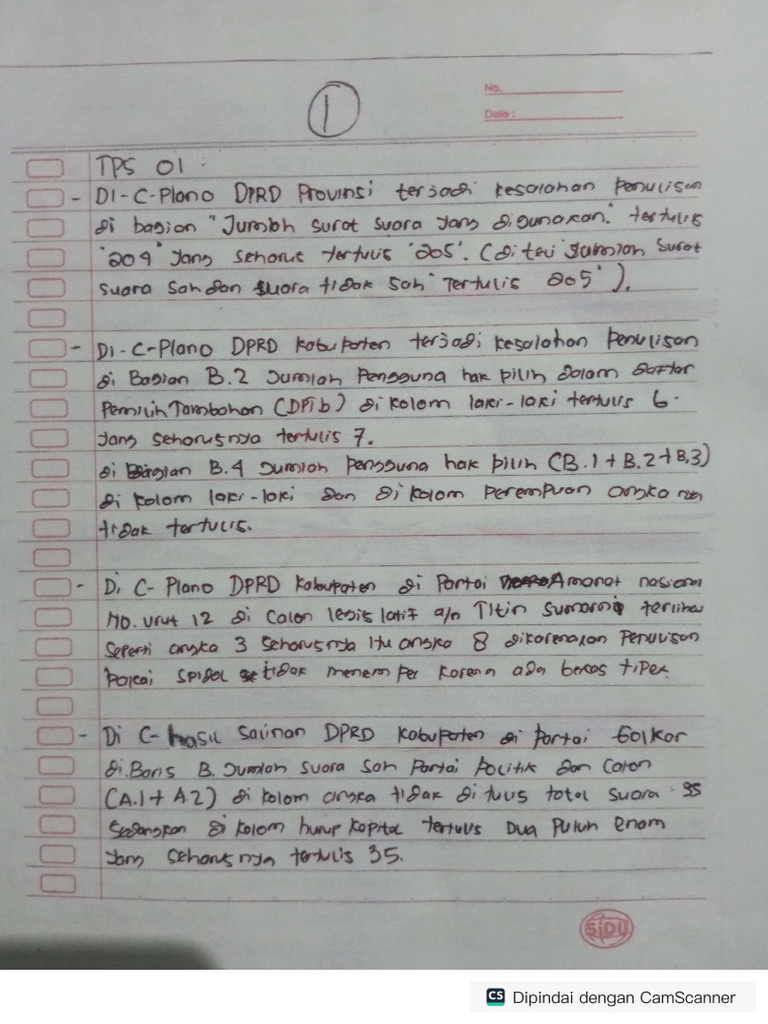 1
No.
Date :
TPS 01 :
- DI-C-Plano DPRD Provinsi terjadi kesalahan Penulisan
di bagian "Jumlah surat suara yang digunakan." tertulis
"204" yang seharus tertulis "205". (di teli Jumlah surat
suara sah dan suara tidak sah" Tertulis 205").
- DI-C-Plano DPRD kabupaten terjadi kesalahan Penulisan
di Bagian B.2 Jumlah Pengguna hak pilih dalam Daftar
Pemilih Tambahan (DPTb) di kolom laki-laki tertulis 6.
yang seharusnya tertulis 7.
di Bagian B.4 Jumlah pengguna hak pilih (B.1 + B.2 + B.3)
di kolom laki-laki dan di kolom perempuan angka nya
tidak tertulis.
- Di C-Plano DPRD Kabupaten di Partai Amanat nasional
No. urut 12 di Calon legislatif a/n Titin Sumarni terlihat
seperti angka 3 seharusnya itu angka 8 dikarenakan Penulisan
Pakai spidol tidak menempel karena ada bekas tipex
- Di C-hasil Salinan DPRD Kabupaten di partai Golkar
di Baris B. Jumlah suara sah Partai Politik dan Calon
(A.1 + A.2) di kolom angka tidak di tulis total suara : 35
Sedangkan di kolom hurup kapital tertulis Dua Puluh enam
yang seharusnya tertulis 35.
SiDU
CS Dipindai dengan CamScanner